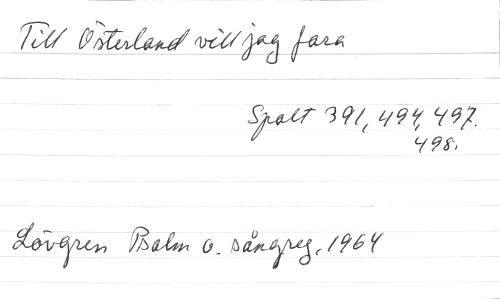 Till Österland vill jag fara
Spalt 391, 494, 497.
498.
Lövgren Psalm o. sångreg. 1964